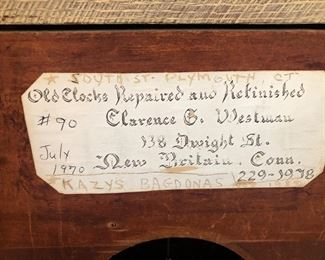 ★ SOUTH ST. PLYMOUTH, CT
Old Clocks Repaired and Refinished
#90
Clarence G. Westman
138 Dwight St.
July 1970
New Britain, Conn.
229-1978
KAZYS BAGDONAS